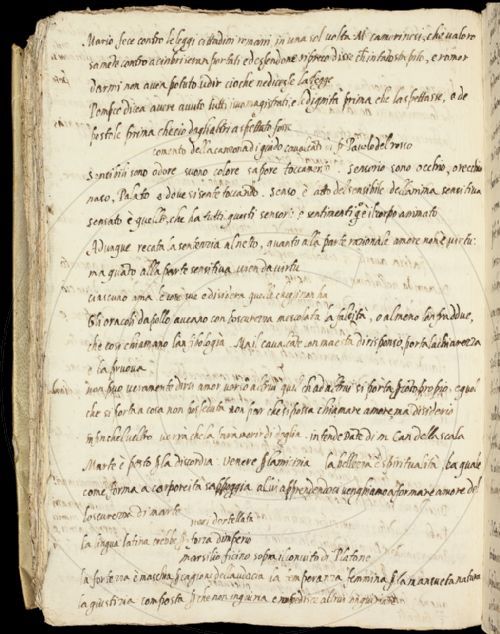 Mario fece contro le leggi cittadini romani in una sol volta M. camerinesi, che valoro
samente contro a cimbri s'eran portati e
darmi non avea potuto udir cio che nedicesse la legge
Pompeo dicea avere avuto tutti i suoi magistrati, e le dignità prima che la spettasse, e de
postole prima che cio dagli altri aspettato fosse
comento della canzona di guido cavalcati di Paulo del rosso
Sensibili sono odore suono colore sapore toccamento. sensorio sono occhio, orecchio
naso, Palato e dove si sente toccando. senso è atto del sensibile dell anima sensitiva
sensato è quello, che ha tutti questi sensori e sentimenti è il corpo animato
Adunque recata la sentenzia al neto, quanto alla parte razionale amore non è virtu:
ma quato alla parte sensitiva vien da virtu
ciascuno ama le cose sue e disidera quelle che non ha
Gli oracoli d'apollo aveano con l'oscurezza mescolata la falsità, o almeno l'infraddue,
che cosi chiamano l'anfibologia. Ma il cavalcate con maestà di risponso, porta la chiarezza
e la pruova
non puo veramente dirsi amor verso altrui quel ch ad altrui si porta p comodo proprio, e quel
che si porta a cosa non posseduta non par che si possa chiamare amore ma disiderio
infinche l veltro verra che la fara morir di doglia. intende Date di m Can della scala
Marte è posto p la discordia. Venere p l'amicizia la bellezza è spiritualita, la quale
come forma a corporeita s'appoggia a lui apprendendosi venghiamo a formare amore del
l'oscurezza di marte
nari dortellata
la lingua latina crebbe p forza d'imperio
marsilio ficino sopra il convito di Platone
la fortezza è maschia p cagione dell'audacia la temperanza femmina p la mansueta natura
la giustizia composta p che non ingiuria e